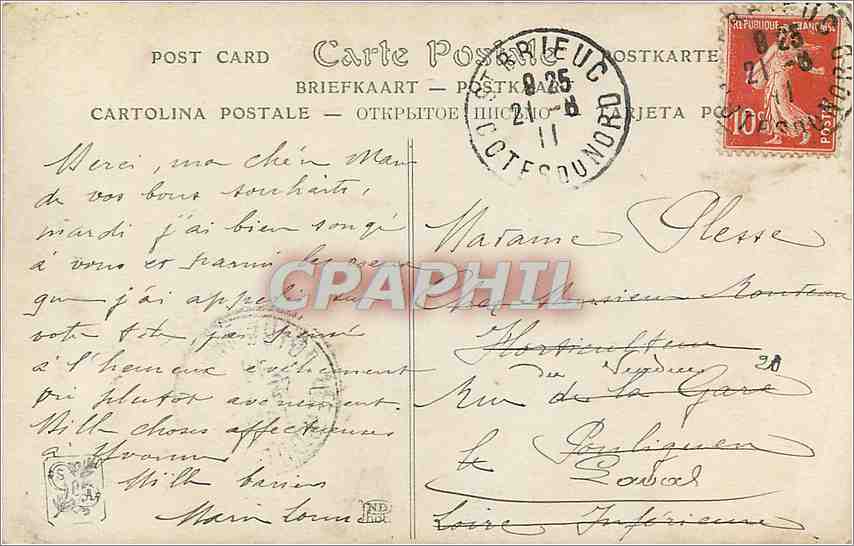 POST CARD Carte Postale POSTKARTE
BRIEFKAART — POSTKAART
CARTOLINA POSTALE — ОТКРЫТОЕ ПИСЬМО TARJETA PO
ST BRIEUC
9 25
21 -8
11
COTES DU NORD
REPUBLIQUE FRANÇAISE
10c
POSTES
Merci, ma chère
de vos bons souhaits,
mardi j'ai bien songé
à vous et parmi les
que j'ai appelé sur
votre tête, j'ai pensé
à l'heureux évènement
ou plutôt avènement.
Mille choses affectueuses
à Yvonne
Mille baisers
Marie Louise
Madame Plesse
Chez Monsieur Rondeau
Horticulteur
Rue de la Gare
20
le Pouliguen
Laval
Loire Inférieure
CPAPHIL
ND
Phot